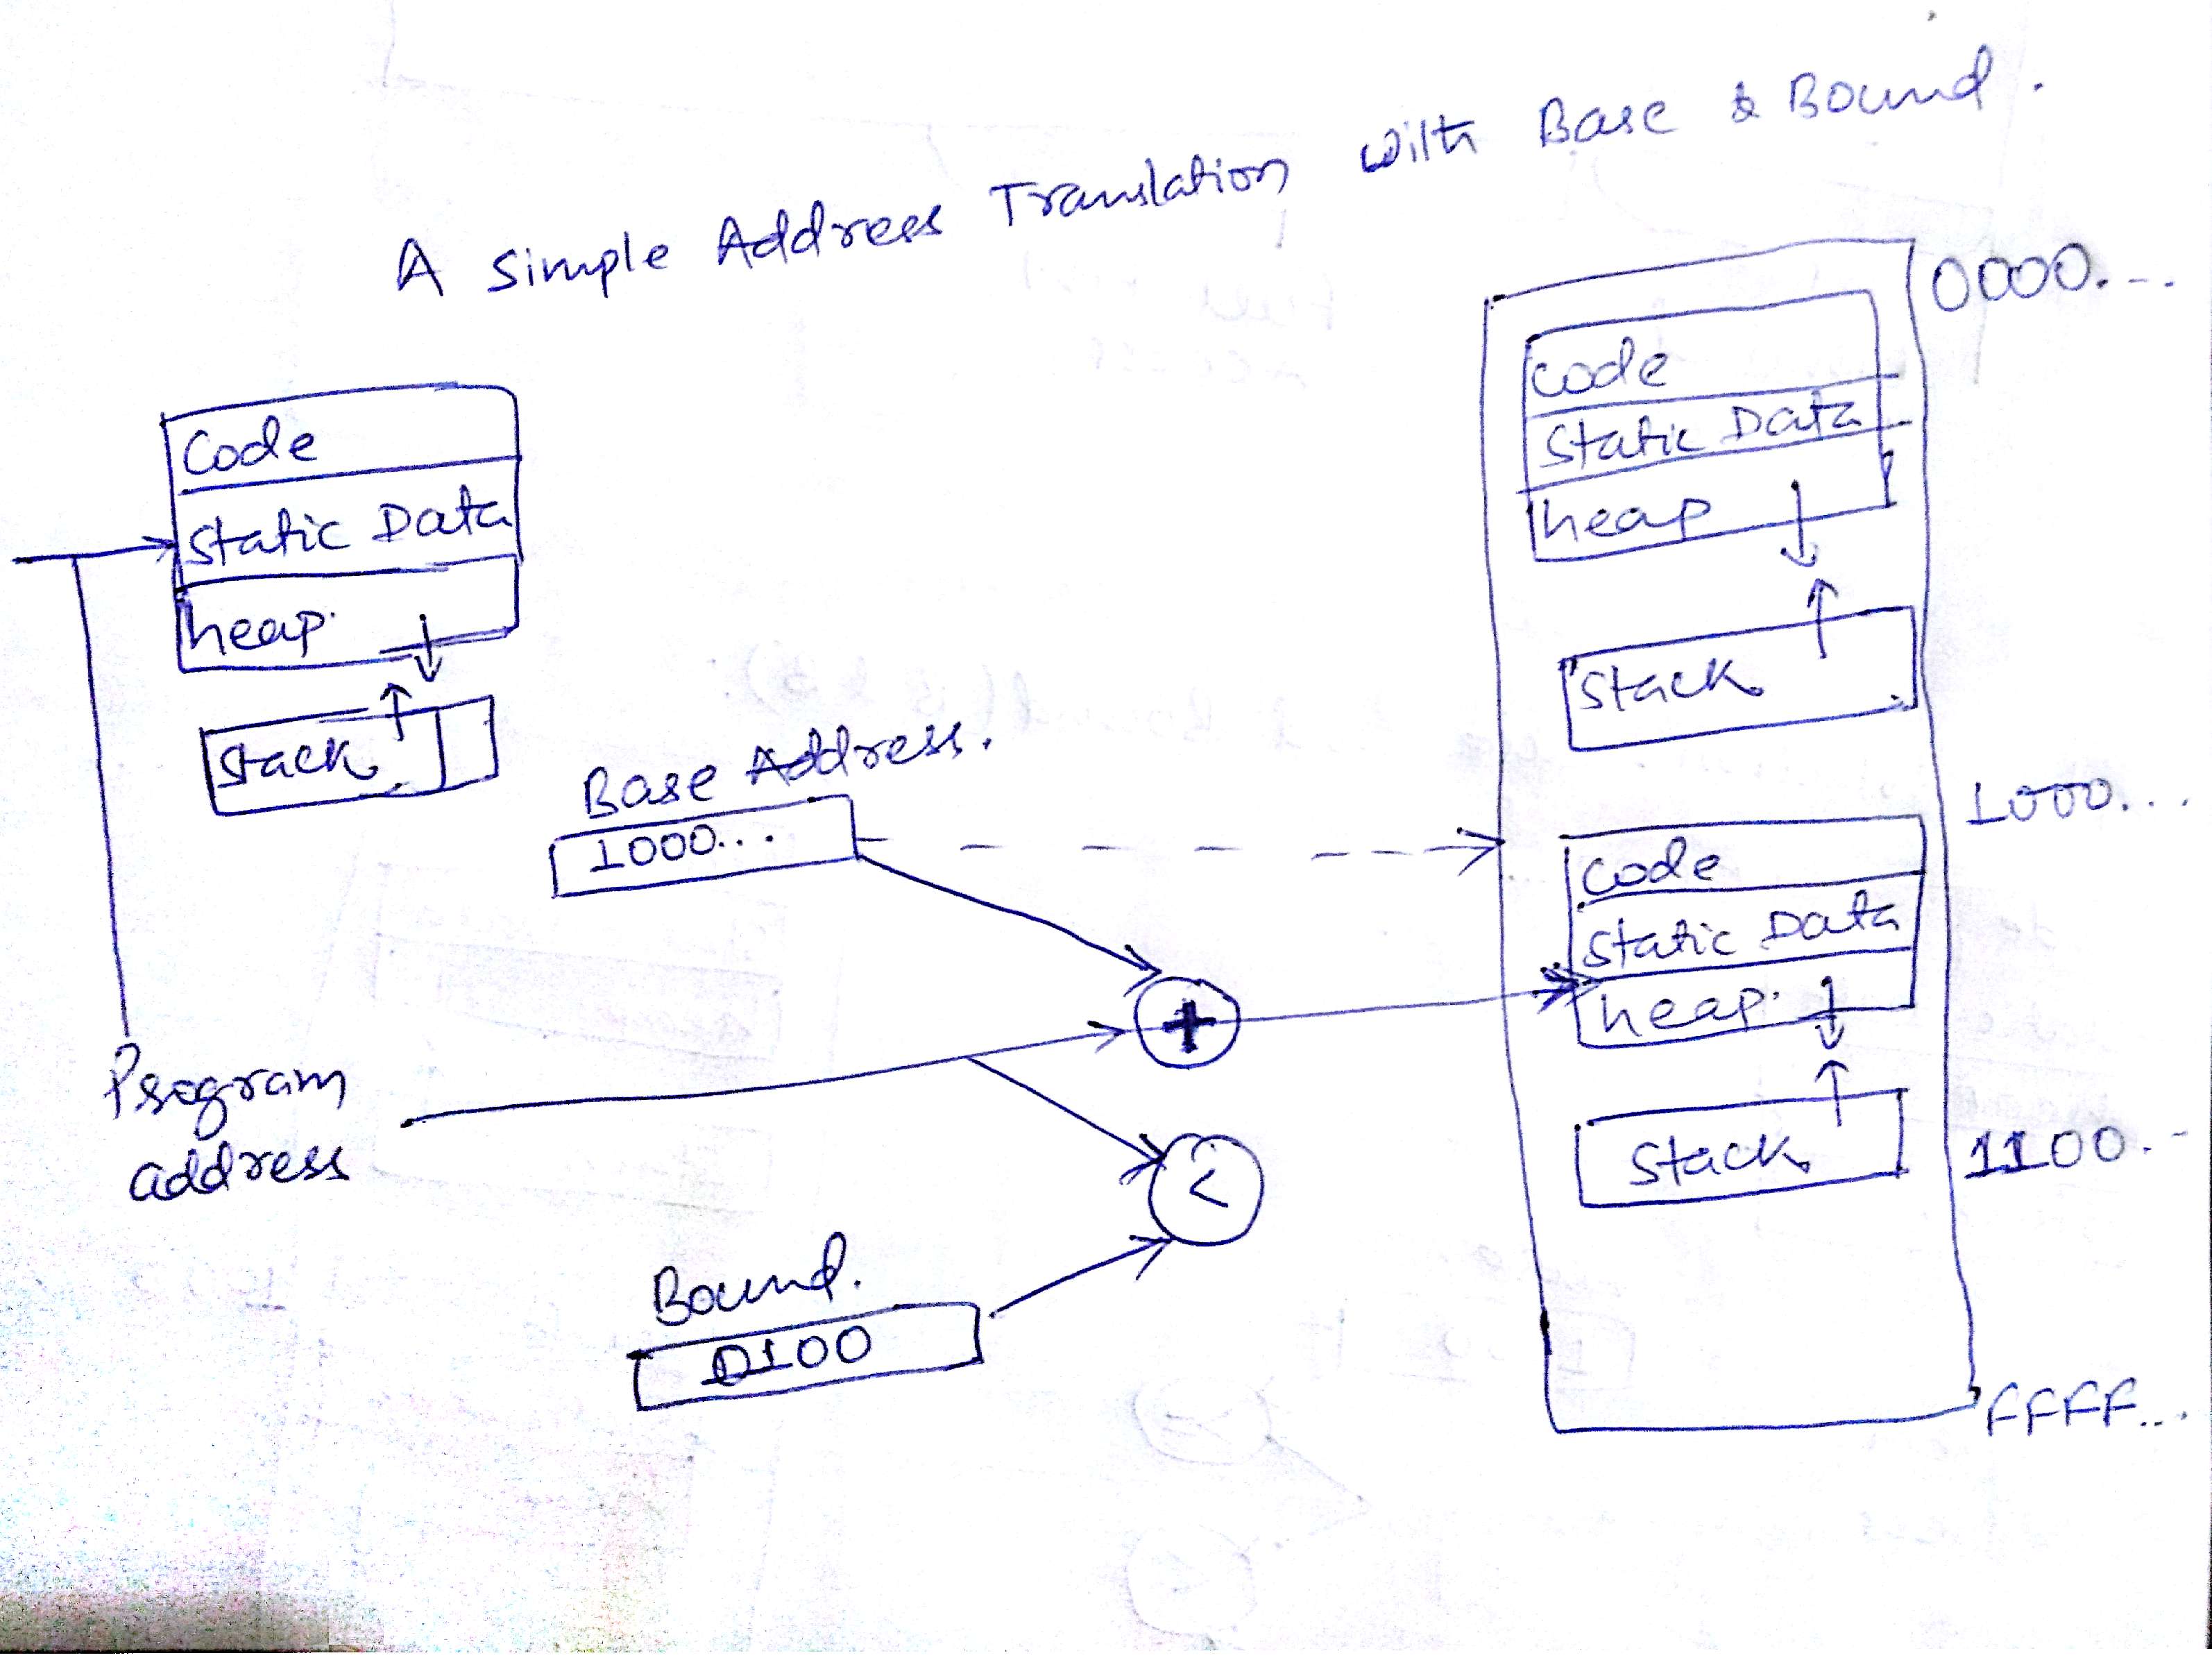 A simple Address Translation with Base & Bound.
Code
Static Data
heap.
Stack
Base Address.
1000...
Program
address
+
<
Bound.
0100
0000...
Code
Static Data
heap
Stack
1000...
Code
Static Data
heap.
Stack
1100..
FFFF...